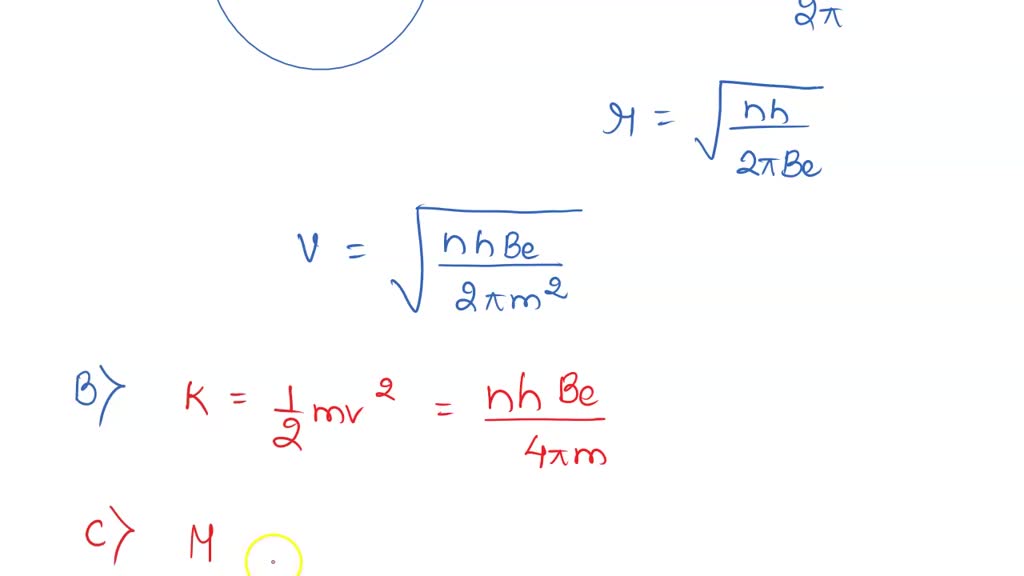 2π
r = √(nh / 2πBe)
v = √(nhBe / 2πm²)
B> K = 1/2 mv² = nhBe / 4πm
C> M